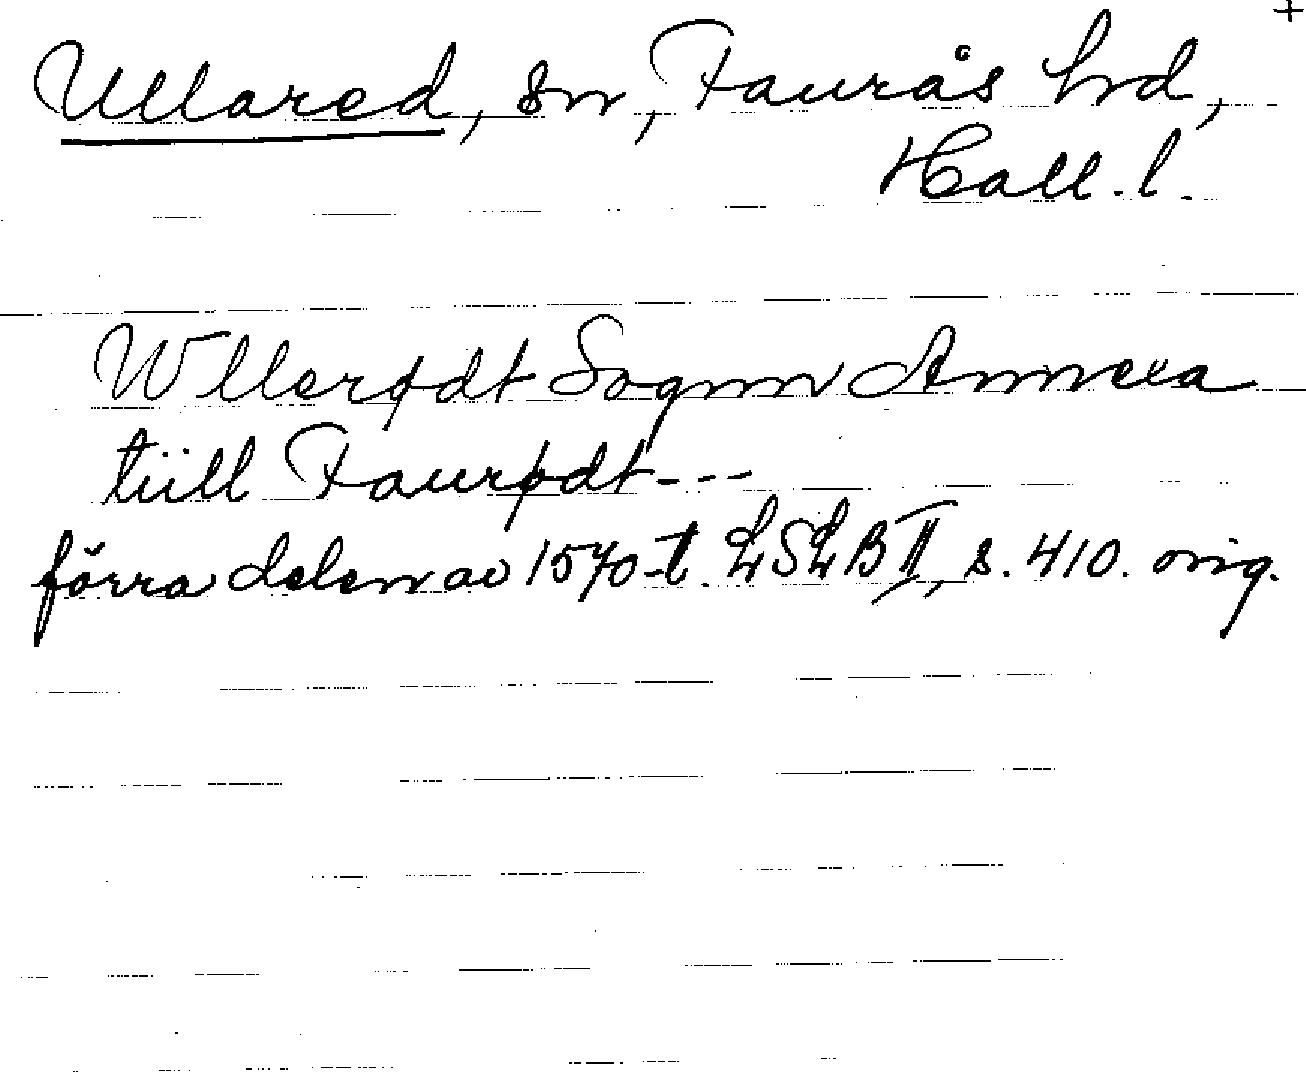 +
Ullared, sn, Faurås hrd,
Hall. l.
Wllerødt Sognn Annexa
tiill Faurødt---
förra delen av 1570-t. LSLB II, s. 410. orig.